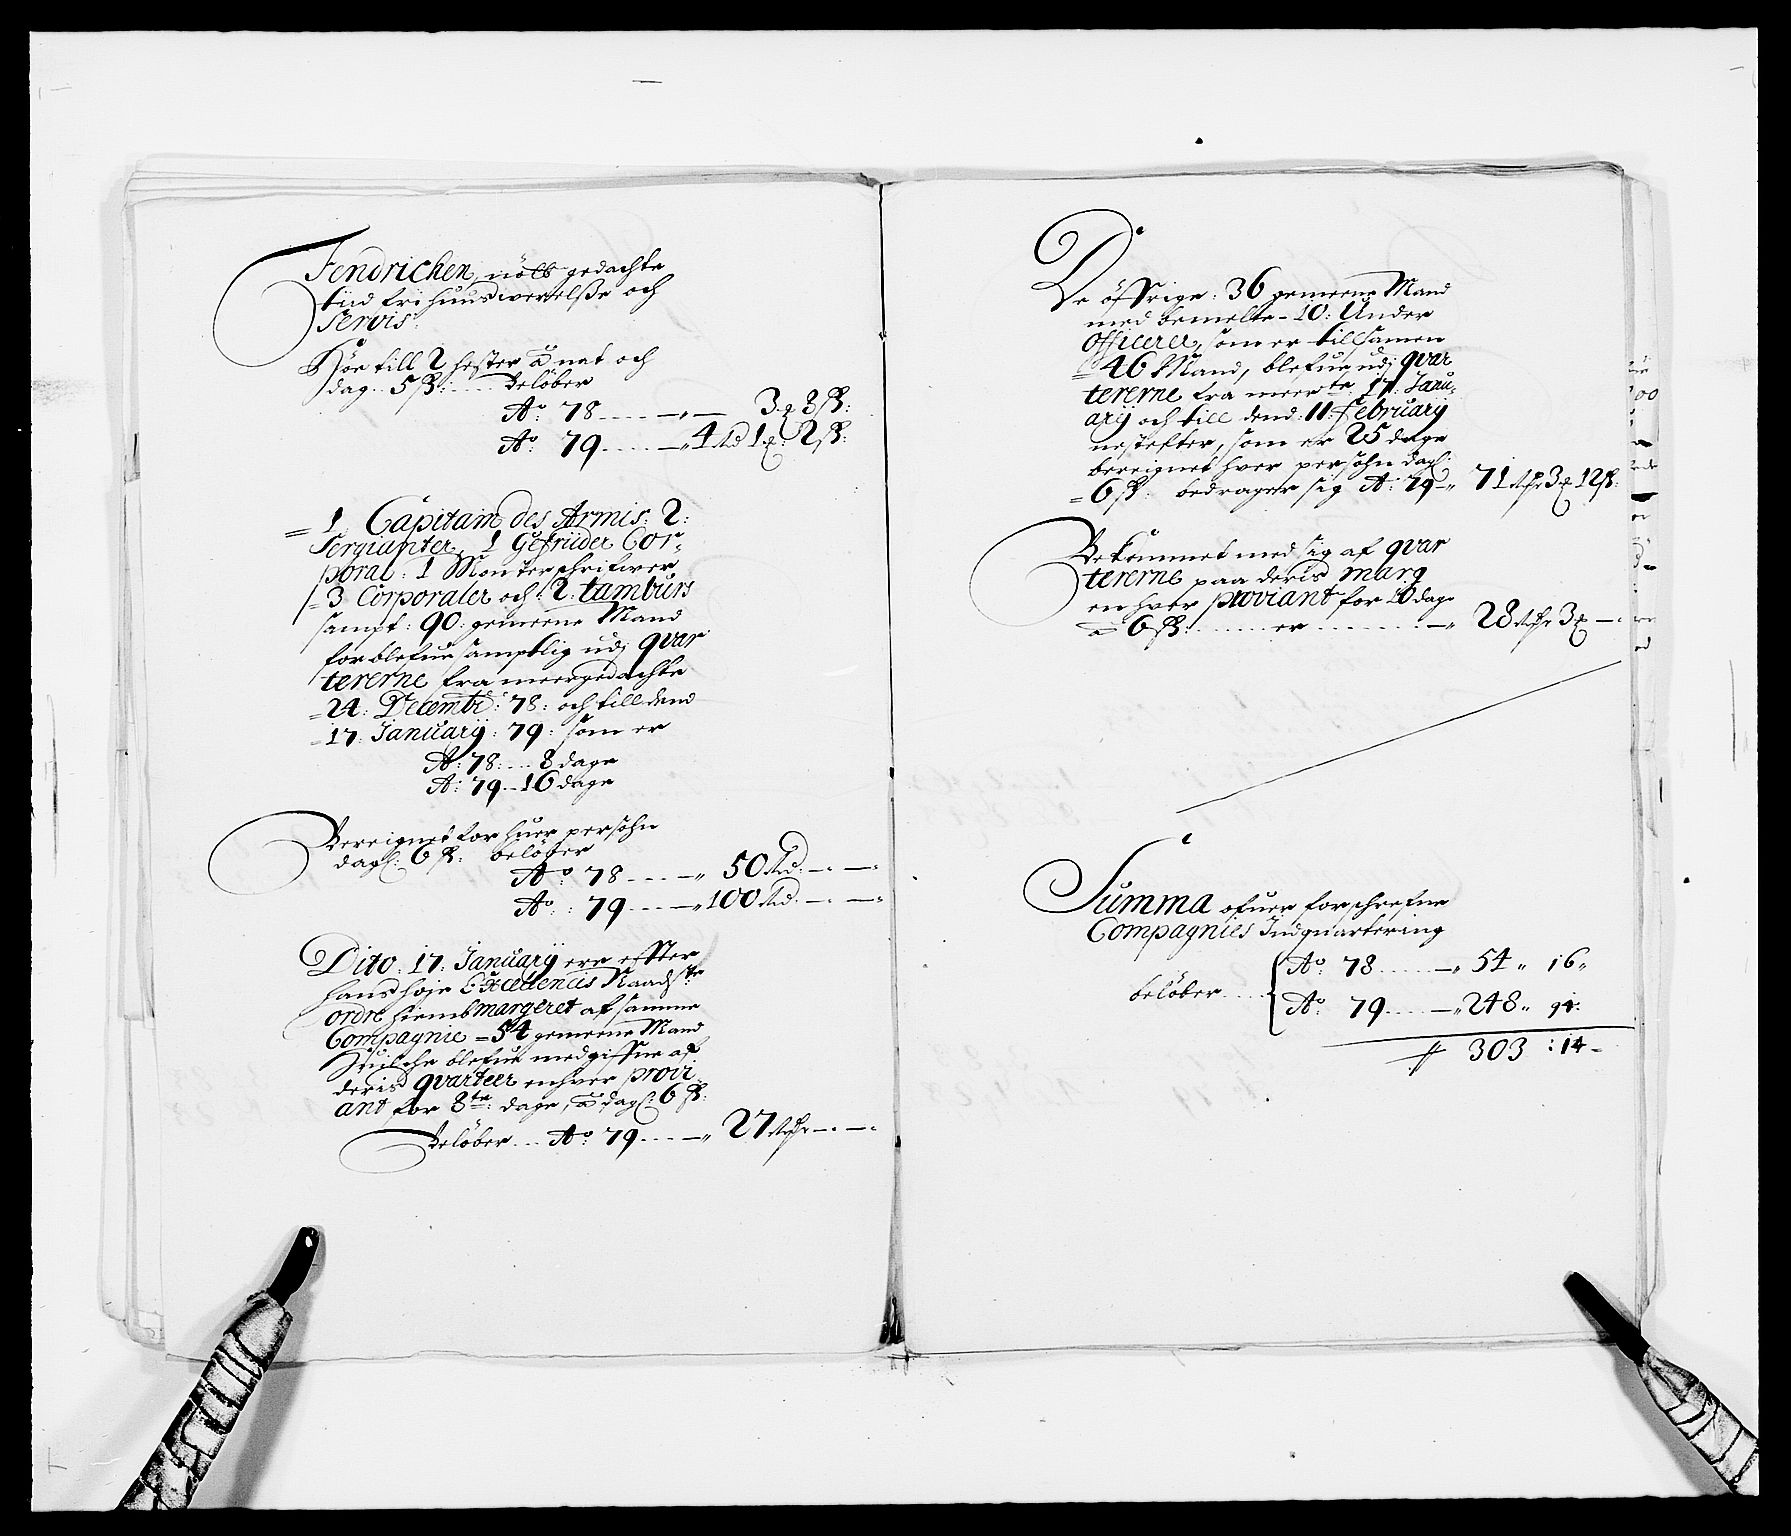 Fendrichen, nölb gedachte
tiid fri huusverelße och
Servis:
Hör till 2 hester a nat och
dag. 5 ß: .... belöber
Ao. 78 ..... — 3 ₰ 8 ß:
Ao: 79 ..... — 4 Rd 1 ₰: 2 ß:
= 1. Capitain des Armis: 2:
Sergianter, 1 Gefriider Cor-
poral: 1 Monsterschrifwer
= 3 Corporaler och: 2. tamburs
sampt: 90: gemeene Mand
forblefue samptlig udj qvar
tererne fra meergedachte
= 24: Decembr: 78: och till dend
= 17: Januarij: 79: som er
Ao: 78: ... 8 dage
Ao: 79 .. 16 dage
Bereignet for huer persohn
dagl: 6 ß: belöber
Ao: 78 ..... — 50 Rd: — —
Ao: 79 ..... — 100 Rd. — —
Dito: 17: Januarij ere effter
hans höje Excellencis Naadste
ordre hiembmargeret af samme
Compagnie = 54 gemeene Mand
Huilche blefue medgifne af
deris qvarteer enhver provi
ant for 8te: dage, a dagl: 6 ß:
Belöber ... Ao: 79 .... — 27 Rdr — —
De öfrige: 36 gemeene Mand
med bemelte = 10: Under
Officerer, som er till samen
= 46 Mand, blefue udj qvar
tererne fra meerte 17: Janu-
arij och till dend: 11: February
nestefter, som er 25 dage
bereignet hver persohn dagl:
= 6 ß: bedrager sig Ao: 79 — 71 Rdr 3 ₰ 12 ß:
Bekommet med sig af qvar
tererne paa deris marg
en hver proviant for 10 dage
a 6 ß: ....... er ....... — 28 Rdr 3 ₰ —
Summa ofuer forschrefne
Compagnies Indquartering
belöber ....
Ao: 78 ..... — 54 „ 16 „
Ao: 79 ..... — 248 „ 94:
303 : 14 -